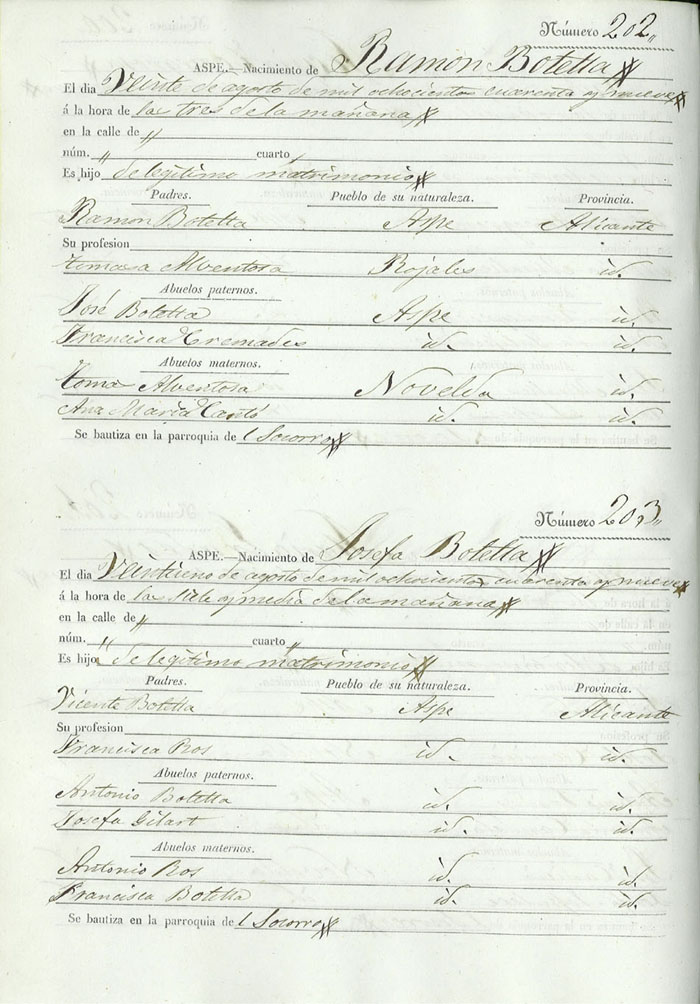 Número 202
ASPE.—Nacimiento de Ramon Botella
El dia Veinte de agosto de mil ochocientos cuarenta y nueve
á la hora de las tres de la mañana
en la calle de "
núm. " cuarto "
Es hijo de legitimo matrimonio
Padres. Pueblo de su naturaleza. Provincia.
Ramon Botella Aspe Alicante
Su profesion
Tomasa Alventosa Rojales id.
Abuelos paternos.
José Botella Aspe id.
Francisca Cremades id. id.
Abuelos maternos.
Toma Alventosa Novelda id.
Ana Maria Cantó id. id.
Se bautiza en la parroquia de l Socorro
Número 203
ASPE.—Nacimiento de Josefa Botella
El dia Veintiuno de agosto de mil ochocientos cuarenta y nueve
á la hora de las siete y media de la mañana
en la calle de "
núm. " cuarto "
Es hijo de legitimo matrimonio
Padres. Pueblo de su naturaleza. Provincia.
Vicente Botella Aspe Alicante
Su profesion
Francisca Ros id. id.
Abuelos paternos.
Antonio Botella id. id.
Josefa Gilart id. id.
Abuelos maternos.
Antonio Ros id. id.
Francisca Botella id. id.
Se bautiza en la parroquia de l Socorro